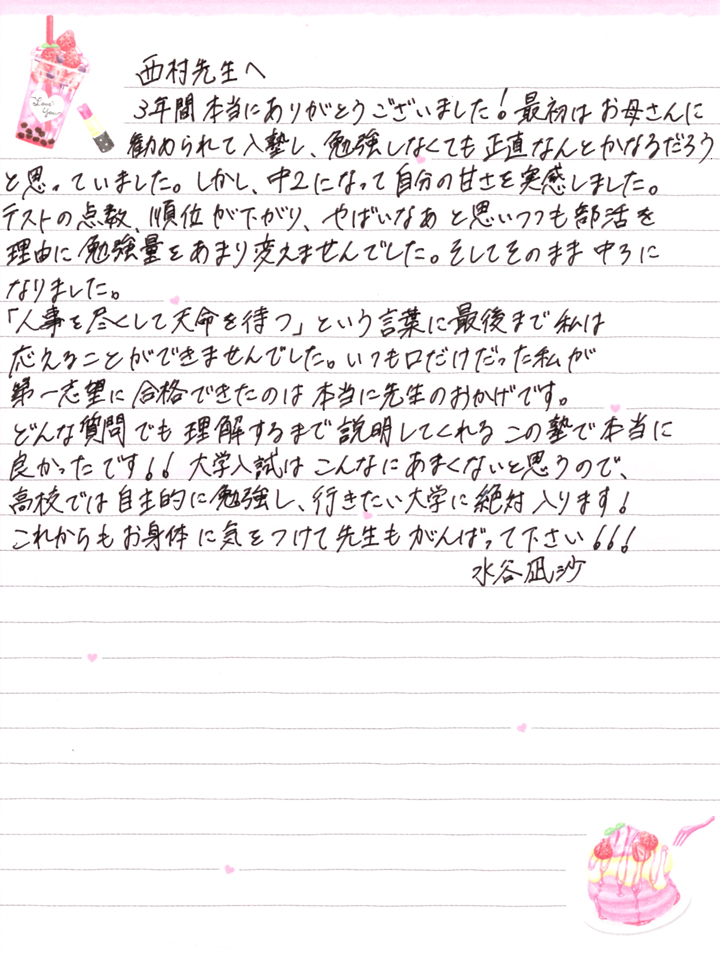 Love
You
西村先生へ
3年間本当にありがとうございました!最初はお母さんに
勧められて入塾し、勉強しなくても正直なんとかなるだろう
と思っていました。しかし、中2になって自分の甘さを実感しました。
テストの点数、順位が下がり、やばいなあと思いつつも部活を
理由に勉強量をあまり変えませんでした。そしてそのまま中3に
なりました。
「人事を尽くして天命を待つ」という言葉に最後まで私は
応えることができませんでした。いつも口だけだった私が
第一志望に合格できたのは本当に先生のおかげです。
どんな質問でも理解するまで説明してくれるこの塾で本当に
良かったです!!大学入試はこんなにあまくないと思うので、
高校では自主的に勉強し、行きたい大学に絶対入ります!
これからもお身体に気をつけて先生もがんばって下さい!!!
水谷凪沙